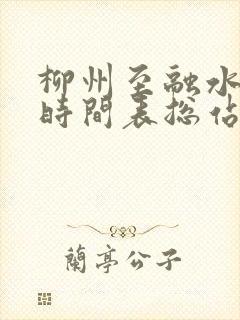 柳州至融水
時間表总站
蘭亭公子